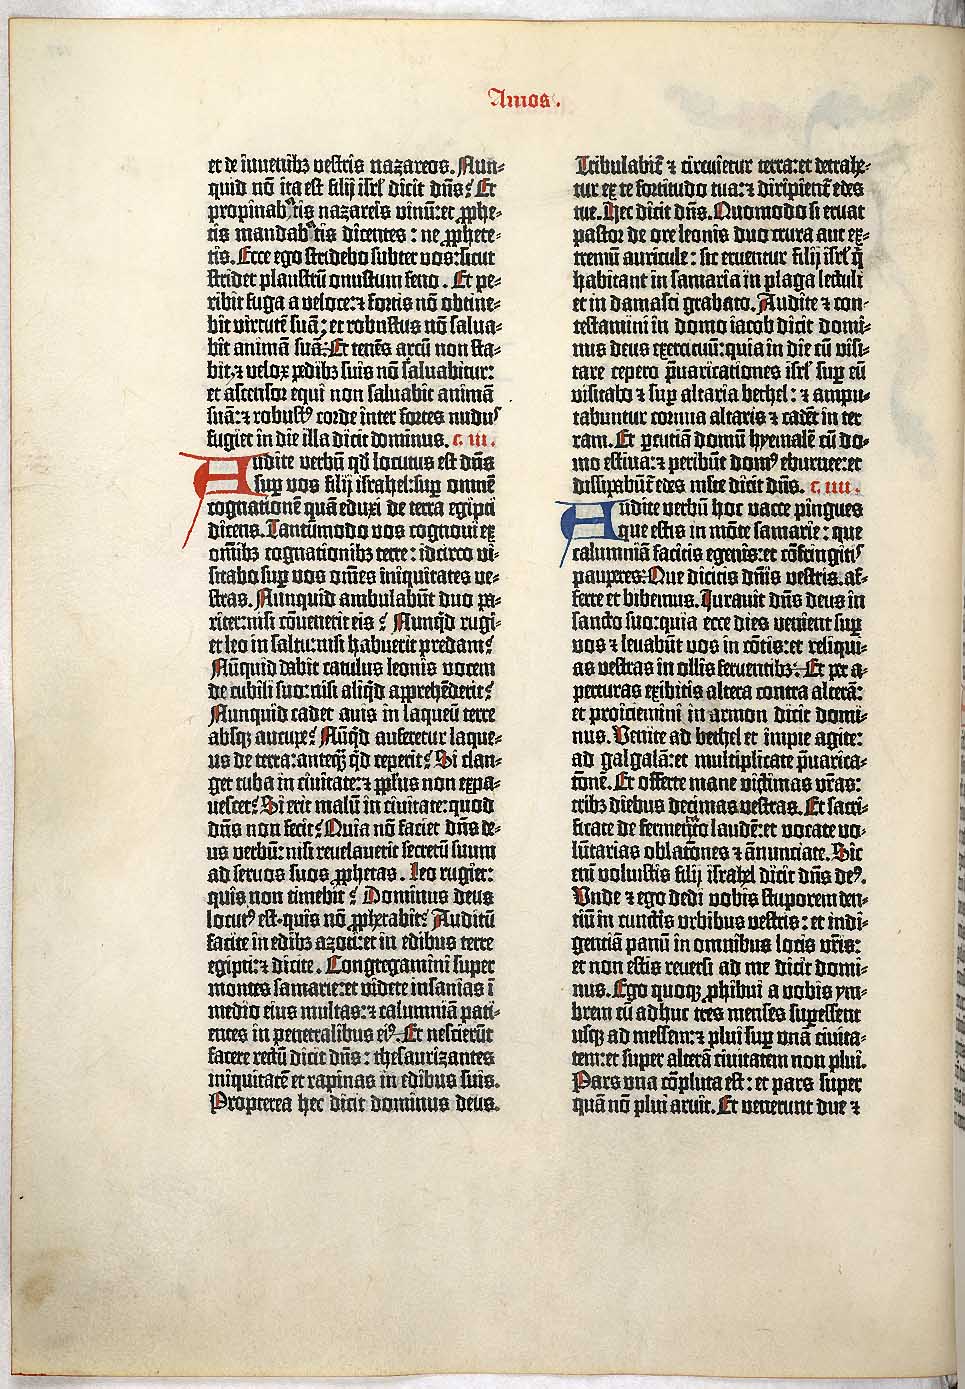 Amos.
et de iuvenibꝫ vestris nazareos. Nun-
quid nō ita est filij isrl' dicit dn̄s? Et
propinabatis nazareis vinū: et ꝓphe-
tis mandabatis dicentes: ne ꝓphete-
tis. Ecce ego stridebo subter vos: sicut
stridet plaustrū onustum feno. Et pe-
ribit fuga a veloce: ⁊ fortis nō obtine-
bit virtutē suā: et robustus nō salva-
bit animā suā. Et tenēs arcū non sta-
bit: ⁊ velox pedibꝫ suis nō salvabitur:
et ascensor equi non salvabit animā
suā: ⁊ robustꝰ corde inter fortes nudus
fugiet in die illa dicit dominus. c. iii.
Audite verbū qd̄ locutus est dn̄s
suꝑ vos filij israhel: suꝑ omnē
cognationē quā eduxi de terra egipti
dicens. Tantūmodo vos cognovi ex
om̄ibꝫ cognationibꝫ terre: idcirco vi-
sitabo suꝑ vos om̄es iniquitates ve-
stras. Nunquid ambulabūt duo pa-
riter: nisi cōvenerit eis? Nunqͥd rugi-
et leo in saltu: nisi habuerit predam?
Nūquid dabit catulus leonis vocem
de cubili suo: nisi aliqͥd apprehēderit?
Nunquid cadet avis in laqueū terre
absqꝫ aucupe? Nūqͥd auferetur laque-
us de terra: anteqꝫ qͥd ceperit? Si clan-
get tuba in civitate: ⁊ pp̄lus non expa-
vescet? Si erit malū in civitate: quod
dn̄s non fecit? Quia nō faciet dn̄s de-
us verbū: nisi revelaverit secretū suum
ad servos suos ꝓphetas. Leo rugiet:
quis non timebit? Dominus deus
locutꝰ est: quis nō ꝓphetabit? Auditū
facite in edibꝫ azoti: et in edibus terre
egipti: ⁊ dicite. Congregamini super
montes samarie: et videte insanias ī
medio eius multas: ⁊ calumniā pati-
entes in penetralibus eiꝰ. Et nescierūt
facere rectū dicit dn̄s: thesaurizantes
iniquitatē et rapinas in edibus suis.
Propterea hec dicit dominus deus.
Tribulabit' ⁊ circuietur terra: et detrahe-
tur ex te fortitudo tua: ⁊ diripient' edes
tue. Hec dicit dn̄s. Quomodo si eruat
pastor de ore leonis duo crura aut ex-
tremū auricule: sic eruentur filij isrl' q̄
habitant in samaria in plaga lectuli
et in damasci grabato. Audite ⁊ con-
testamini in domo iacob dicit domi-
nus deus exercituū: quia in die cū visi-
tare cepero p̄varicationes isrl' suꝑ eū
visitabo ⁊ suꝑ altaria bethel: ⁊ ampu-
tabuntur cornua altaris ⁊ cadēt in ter
ram. Et ꝑcutiā domū hyemalē cū do-
mo estiva: ⁊ peribūt domꝰ eburnee: et
dissipabūt' edes mlte dicit dn̄s. c. iiii.
Audite verbū hoc vacce pingues
que estis in mōte samarie: que
calumniā facitis egenis: et cōfringitis
pauperes. Que dicitis dn̄is vestris. af-
ferte et bibemus. Iuravit dn̄s deus in
sancto suo: quia ecce dies venient suꝑ
vos ⁊ levabūt vos in cōtis: et reliqui-
as vestras in ollis ferventibꝫ. Et per a-
perturas exibitis altera contra alterā:
et proiciemini in armon dicit domi-
nus. Venite ad bethel et impie agite:
ad galgalā: et multiplicate p̄varica-
tōnē. Et offerte mane victimas vr̄as:
tribꝫ diebus decimas vestras. Et sacri-
ficate de fermentato laudē: et vocate vo-
lūtarias oblatōnes ⁊ ānunciate. Sic
eni voluistis filij israhel dicit dn̄s deꝰ.
Unde ⁊ ego dedi vobis stuporem den-
tiū in cunctis urbibus vestris: et indi-
gentiā panū in omnibus locis vr̄is:
et non estis reversi ad me dicit domi-
nus. Ego quoqꝫ ꝓhibui a vobis ym-
brem cū adhuc tres menses suꝑessent
usqꝫ ad messem: ⁊ plui suꝑ unā civita-
tem: et super alterā civitatem non plui.
Pars una cōpluta est: et pars super
quā nō plui aruit. Et venerunt due ⁊